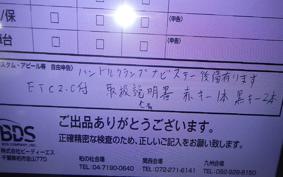 /保
(申告)
台
(申告)
スタム・アピール等 自由申告)
ハンドルクランプナビステー後備有ります
ETC2.0付 取扱説明書 赤キー1本 黒キー2本
ご出品ありがとうございます。
正確精密な検査のため、正しいご記入をお願い致します。
BDS
株式会社ビーディーエス
千葉県柏市金山770
柏の杜会場
TEL:04-7190-0640
関西会場
TEL:072-271-6141
九州会場
TEL:092-928-8150